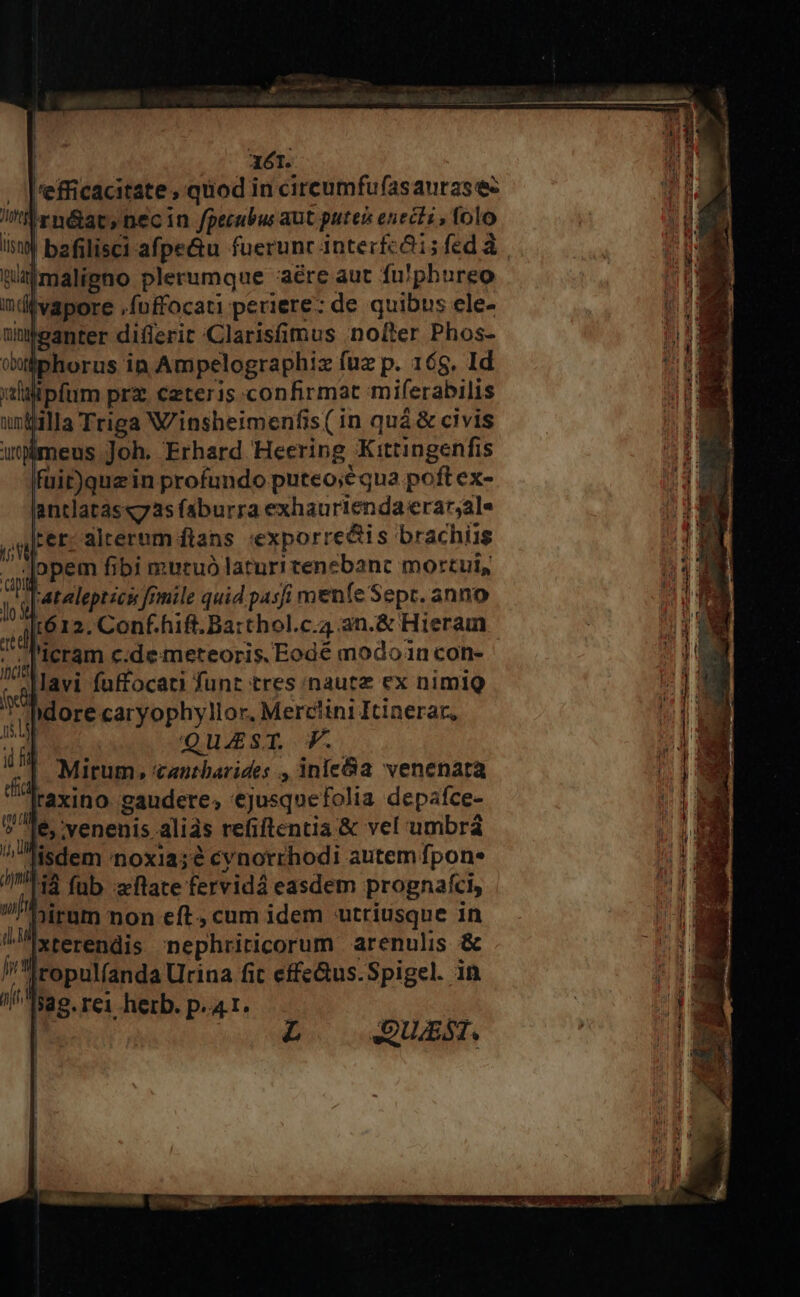 161.
efficacitate, quod in circumfuſas auras e-
ructat, nec in ſpecubus aut puteis enecti, ſolo
baſilisci aſpectu fuerunt interfecti; ſed à
maligno plerumque aëre aut ſulphureo
vapore ſuffocati periere: de quibus ele-
ganter diſſerit Clarisſimus noſter Phos-
phorus in Ampelographiæ ſuæ p. 169. Id
ipſum præ cæteris confirmat miſerabilis
illa Triga Winsheimenſis (in quâ & civis
meus Joh. Erhard Heering Kittingenſis
fuit) quæ in profundo puteo, è qua poſt ex-
antlatas aquas ſaburra exhaurienda erat, al-
ter alterum ſtans exporrectis brachiis
opem ſibi mutuò laturi tenebant mortui,
catalepticis ſimile quid pasſi menſe Sept. anno
1612. Conf. hiſt. Barthol. c. 4. an. & Hieram
c. de meteoris. Eodē modo in con-
clavi ſuffocati ſunt tres nautæ ex nimio
odore caryophyllor. Merclini Itinerar.
QUÆST. V.
Mirum, cantharides, inſecta venenata
fraxino gaudere, ejusque folia depaſce-
re, venenis aliàs reſiſtentia & vel umbrâ
iisdem noxia; è cynorrhodi autem ſpon-
giâ ſub æſtate fervidâ easdem prognaſci,
mirum non eſt, cum idem utriusque in
exterendis nephriticorum arenulis &
propulſanda Urina ſit effectus. Spigel. in
Iſag. rei herb. p. 41.
L QUÆST.